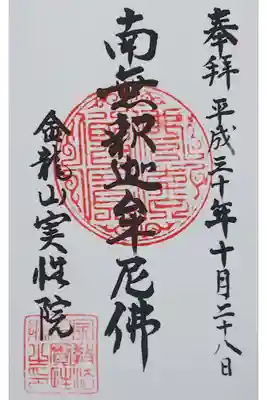 奉拝 平成三十年十月二十八日
南無釈迦牟尼佛
金龍山実性院